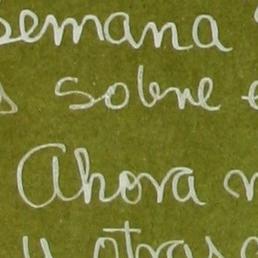 semana
sobre
Ahora
y otras